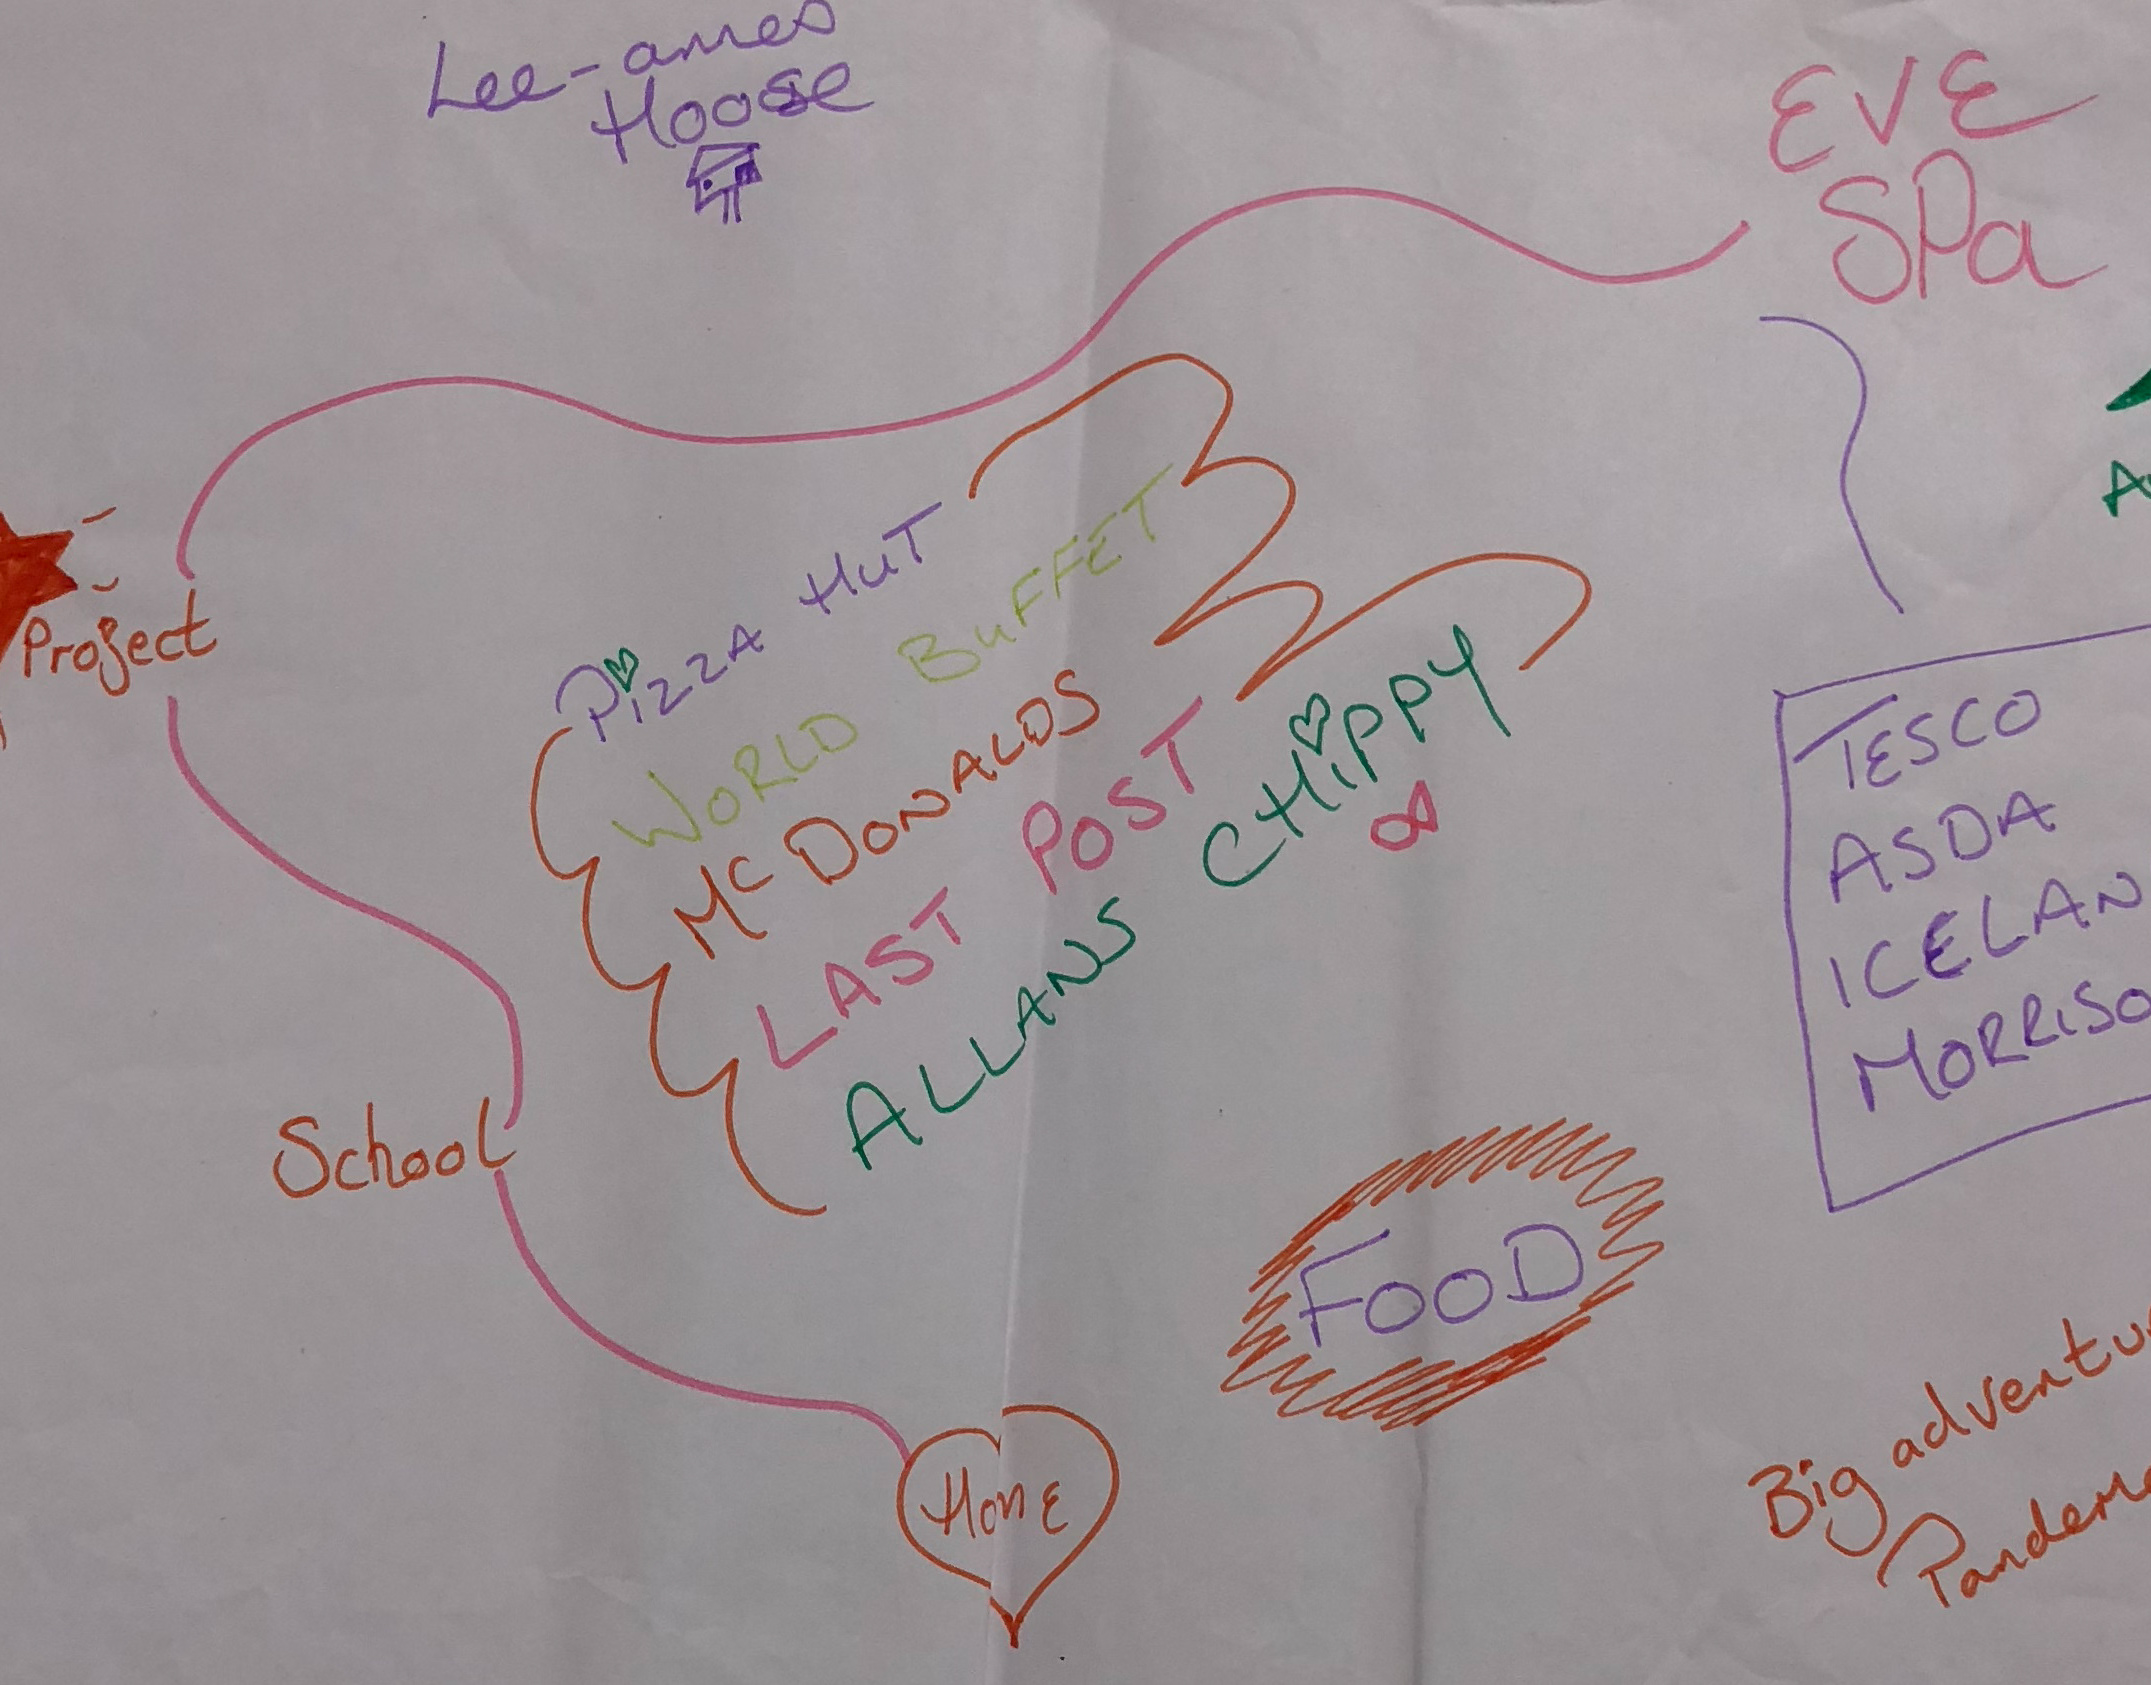 Lee-annes
Hoose
EVE
SPa
Project
PIZZA HUT
WORLD BUFFET
McDONALDS
LAST POST
ALLANS CHIPPY
TESCO
ASDA
ICELAN
MORRISO
School
FOOD
HomE
Big adventu
Pandem